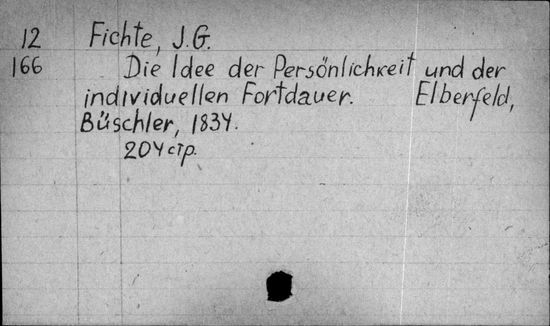 12 Fichte, J.G.
166 Die Idee der Persönlichkeit und der
individuellen Fortdauer. Elberfeld,
Büschler, 1834.
204 стр.